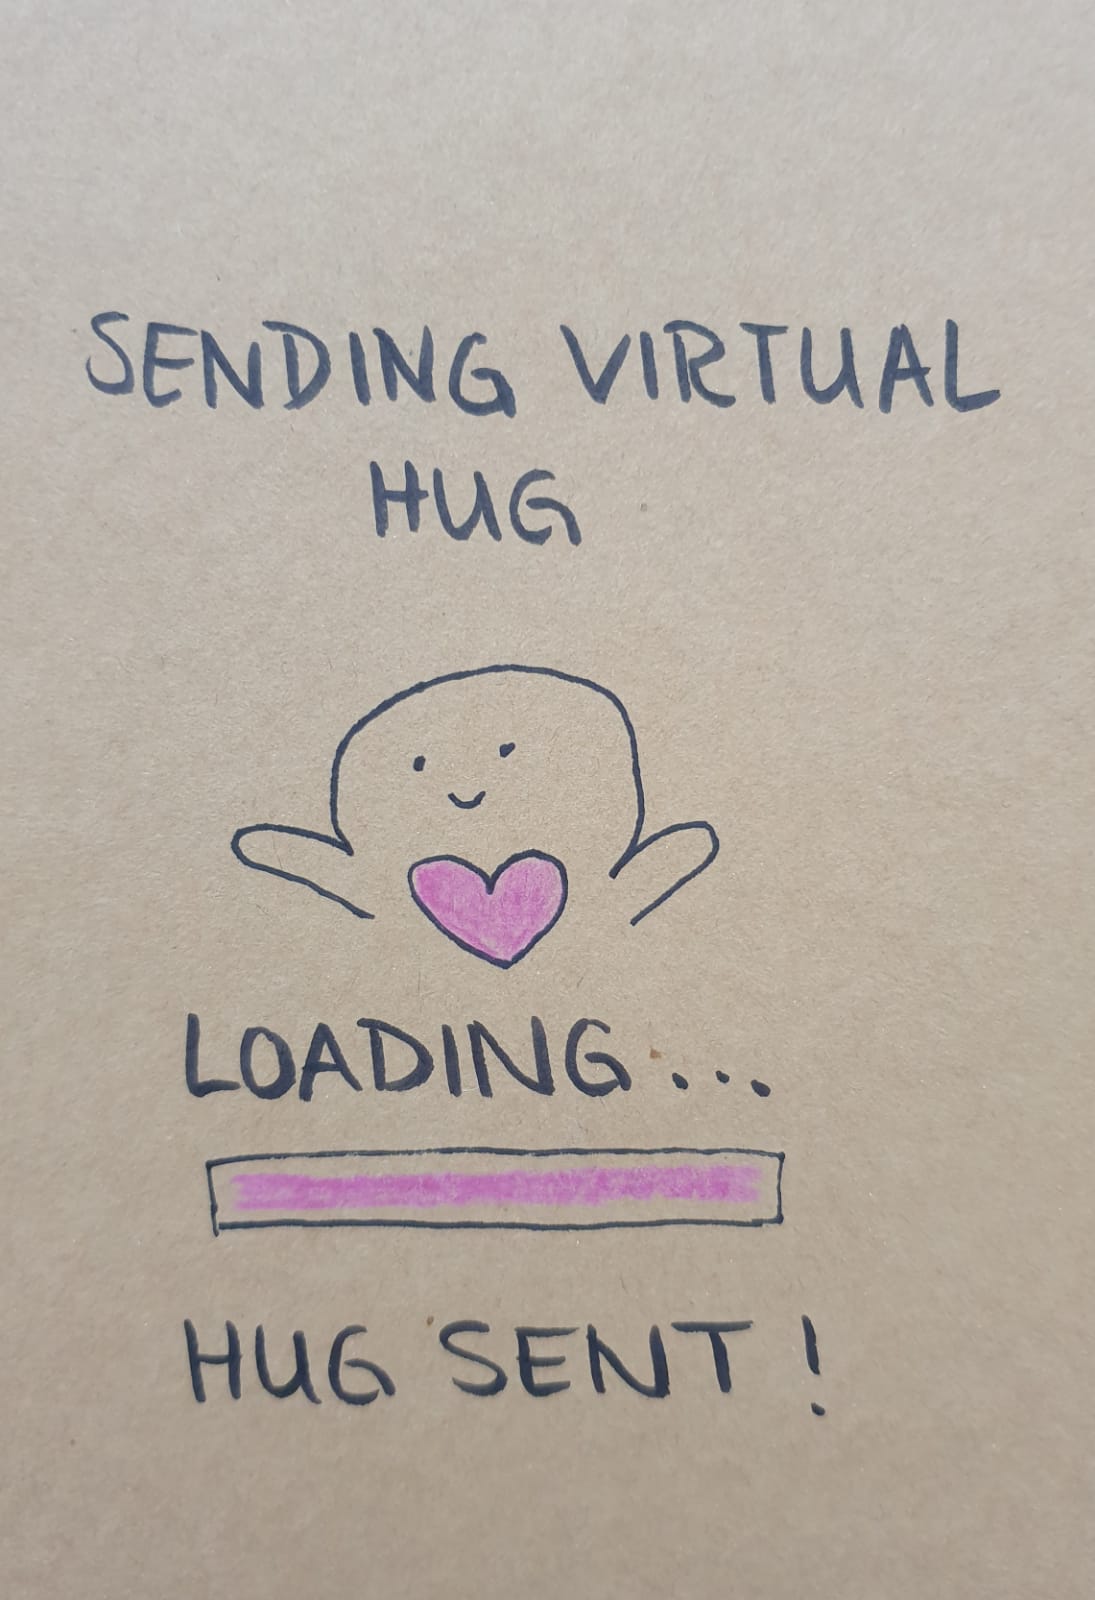 SENDING VIRTUAL
HUG
LOADING...
HUG SENT!